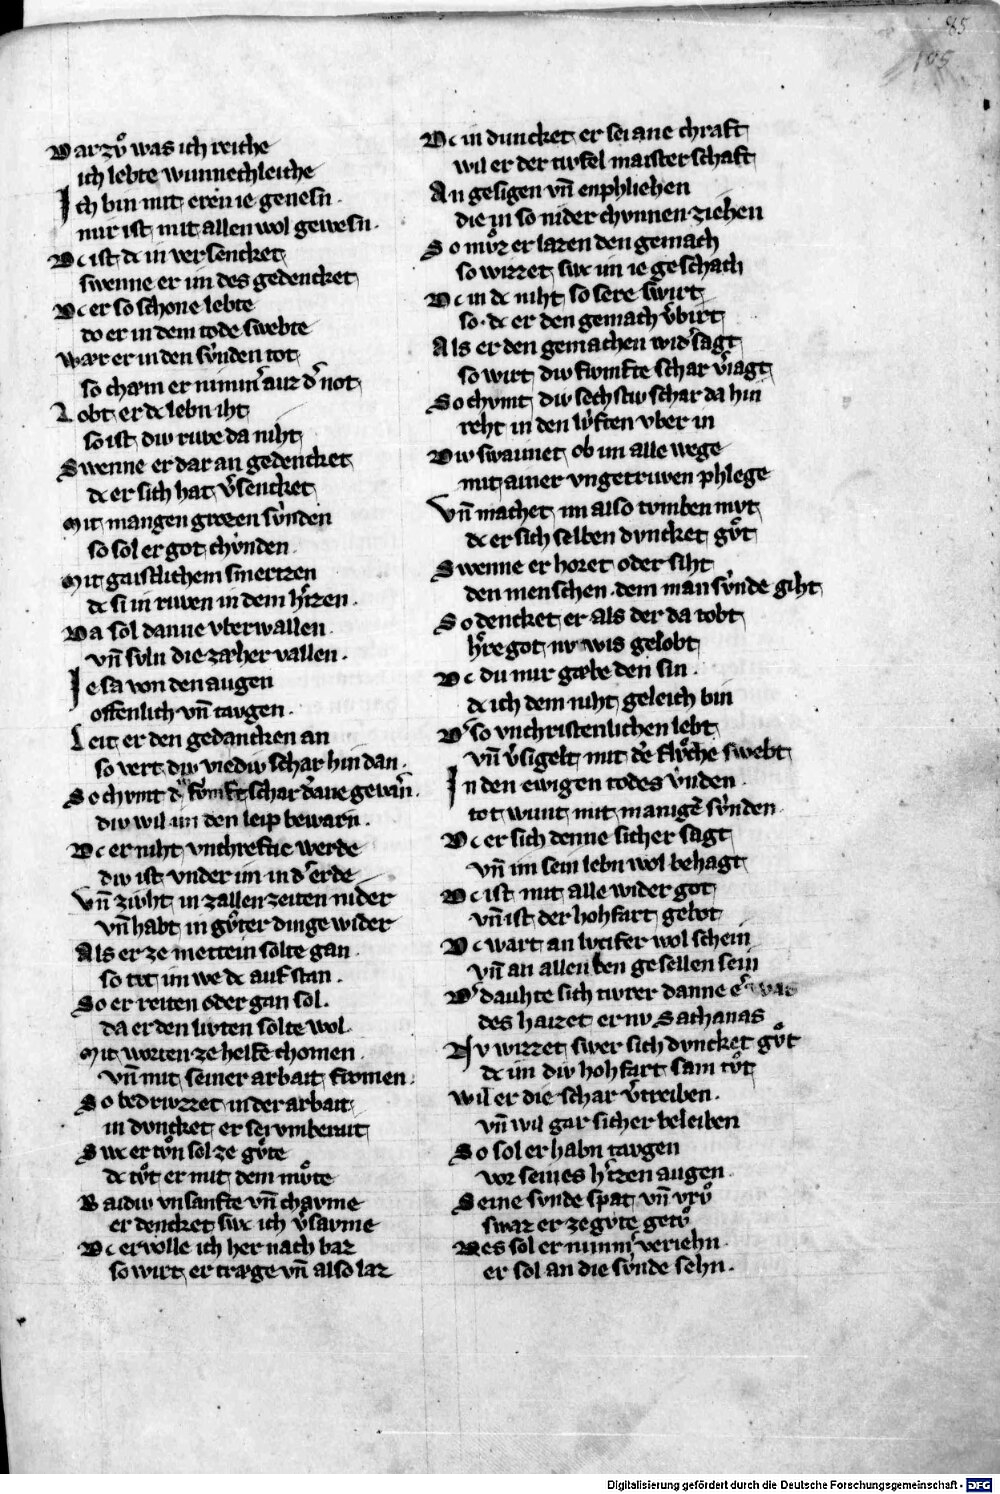 85
105
Warzuͦ was ich reiche
ich lebte wunnechleiche
Ich bin mit eren ie genesn.
mir ist mit allen wol gewesn.
Dc ist dc in versencket
swenne er im des gedencket
Dc er so schone lebte
do er in dem tode swebte
Wær er in den sv̓nden tot
so chæm er nimm̓ auz d̓ not
Lobt er dc lebn iht
so ist div riwe da niht
Swenne er dar an gedencket
dc er sich hat v̓sencket
Mit mangen grozen sv̓nden
so sol er got chv̓nden.
Mit gaistlichem smertzen
dc si in riwen in dem h̓tzen.
Da sol danne vberwallen.
vn̄ svln die zæher vallen.
Ie sa von den augen
offenlich vn̄ tavgen.
Leit er den gedancken an
so vert div viediv schar hin dan.
So chvmt d̓ fvmft schar d̓ave gewin̓.
div wil im den leip bewarn.
Dc er niht vnchreftic werde
div ist vnder im in d̓ erde
Vn̄ zivht in zallen zeiten nider
vn̄ habt in gv̊ter dinge wider
Als er ze mettein solte gan.
so tvt im we dc auf stan.
So er reiten oder gan sol.
da er den livten solte wol
Mit worten ze helfe chomen.
vn̄ mit seiner arbait fromen.
So bedrivzzet in der arbait
in dvncket er sei vmberait
Swc er tvͦn sol ze gvͤte
dc tvͦt er mit dem mvͦte
Raidiv vnsanfte vn̄ chavme
er dencket swc ich v̓savme
Dc ervolle ich her nach baz
so wirt er træge vn̄ also laz
Dc in duncket er sei ane chraft
wil er der tivfel maisterschaft
An gesigen vn̄ enphliehen
die in so nider chvnnen ziehen
So mvͦz er lazen den gemach
so wizzet swc im ie geschach
Dc in dc niht so sere swirt
so. dc er den gemach v̓birt
Als er den gemachen wid̓sagt
so wirt div fvmfte schar v̓iagt
So chvmt div sechstiv schar da hin
reht in den lv̓ften vber in
Div swaimet ob im alle wege
mit ainer vngetriwen phlege
Vn̄ machet im also tvmben mvt
dc er sich selben dvncket gvͦt
Swenne er horet oder siht
den menschen. dem man sv̓nde giht
So dencket er als der da tobt
h̓re got nv wis gelobt
Dc du mir gæbe den sin.
dc ich dem niht geleich bin
D̓ so vnchristenlichen lebt
vn̄ v̓sigelt mit d̓e flvͦche swebt
In den ewigen todes v̓nden
tot wunt mit manigē sv̓nden.
Dc er sich denne sicher sagt
vn̄ im sein lebn wol behagt
Dc ist mit alle wider got
vn̄ ist der hohfart gebot
Dc wart an lvcifer wol schein
vn̄ an allen den gesellen sein
D̓ dauhte sich tivrer danne er was
des haizet er nv Sathanas
Nv wizzet swer sich dvncket gvͦt
dc im div hohfart sam tvͦt
Wil er die schar v̓treiben.
vn̄ wil gar sicher beleiben
So sol er habn tavgen
vor seines h̓tzen augen.
Seine sv̓nde spat vn̄ vrvͦ
swaz er ze gvte getvͦ
Des sol er nimm̓ veriehn.
er sol an die sv̓nde sehn.
Digitalisierung gefördert durch die Deutsche Forschungsgemeinschaft - DFG